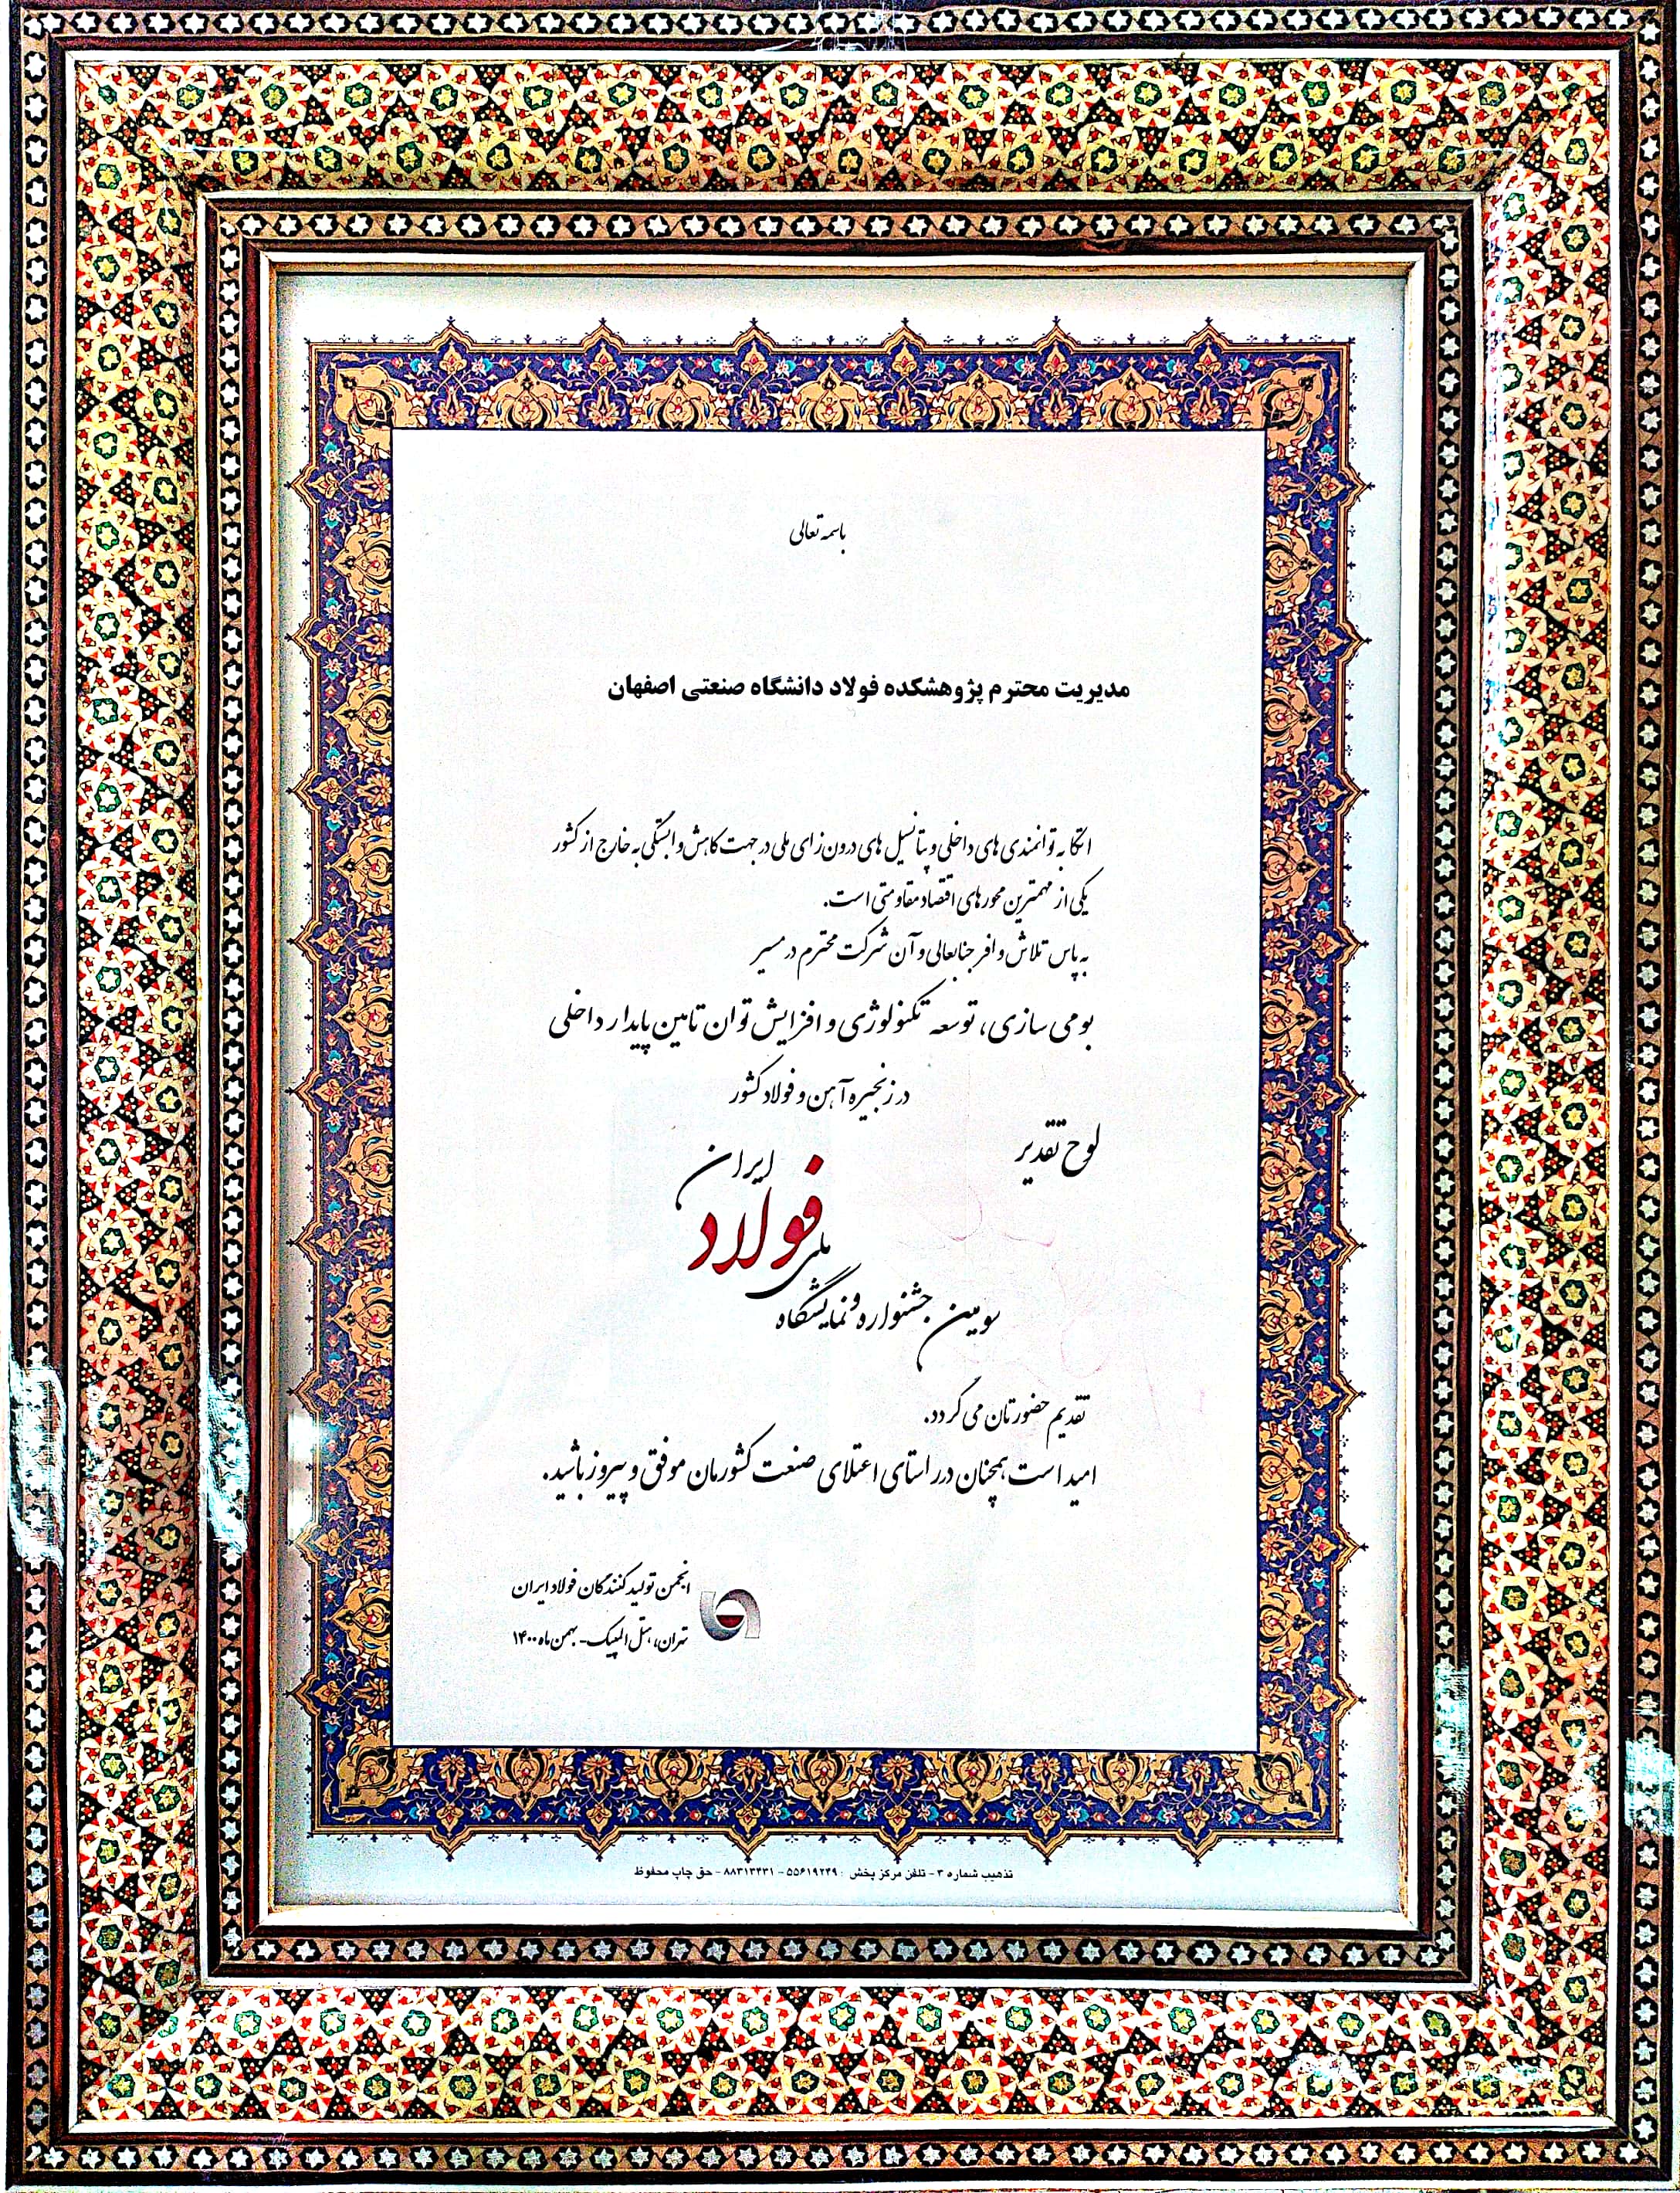 باسمه تعالی
مدیریت محترم پژوهشکده فولاد دانشگاه صنعتی اصفهان
اتکا به توانمندی های داخلی و پتانسیل های درون زای ملی در جهت کاهش وابستگی به خارج از کشور
یکی از مهمترین محورهای اقتصاد مقاومتی است.
به پاس تلاش وافر جنابعالی و آن شرکت محترم در مسیر
بومی سازی، توسعه تکنولوژی و افزایش توان تامین پایدار داخلی
در زنجیره آهن و فولاد کشور
لوح تقدیر
سومین جشنواره و نمایشگاه
ملی فولاد ایران
تقدیم حضورتان می گردد.
امید است همچنان در راستای اعتلای صنعت کشورمان موفق و پیروز باشید.
انجمن تولیدکنندگان فولاد ایران
تهران، هتل المپیک - بهمن ماه ۱۴۰۰
تذهیب شماره ۳ - تلفن مرکز پخش : ۵۵۶۱۹۲۴۹ - ۸۸۳۱۳۴۳۱ - حق چاپ محفوظ